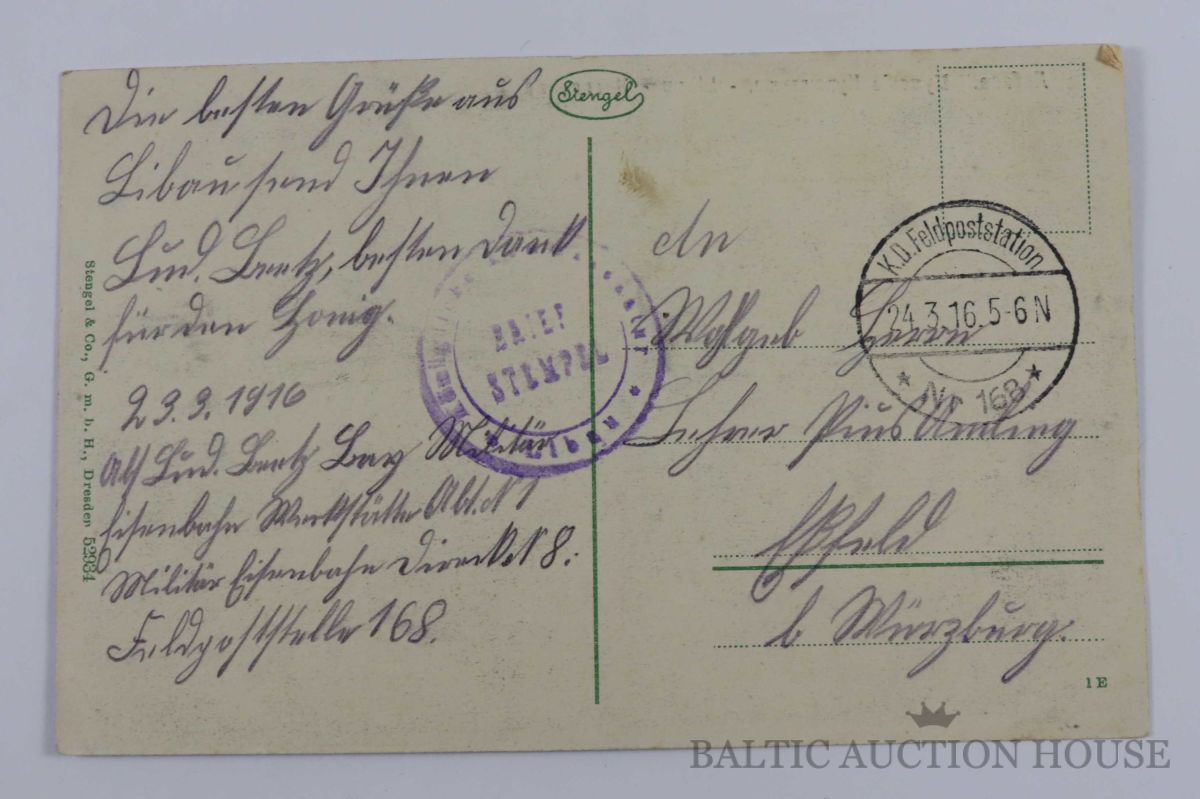 Die besten Grüße aus
Libau send Ihnen
Lud. Bentz, besten Dank
für den Honig.
23.3.1916
Abs Lud. Bentz Bay Militär
Eisenbahn Werkstätte Abt. N 1
Militär Eisenbahn Direkt. N 8.
Feldpoststelle 168.
Stengel & Co., G. m. b. H., Dresden 52934
Stengel
BRIEF
STEMPEL
K.D.Feldpoststation
24.3.16.5-6N
* Nr. 168 *
An
Wohlgeb Herrn
Lehrer Pius Amling
Eßfeld
b Würzburg.
1E
BALTIC AUCTION HOUSE